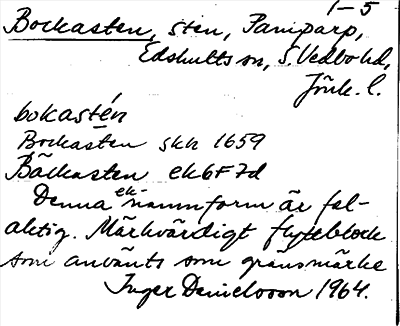 1-5
Bockasten, sten, Paniparp,
Edshults sn, S. Vedbo hd,
Jönk. l.
bokastén
Bockasten skn 1659
Bäckasten ek6F7d
Denna ek-namnform är fel-
aktig. Märkvärdigt flyttblock
som använts som gränsmärke
Inger Danielsson 1964.